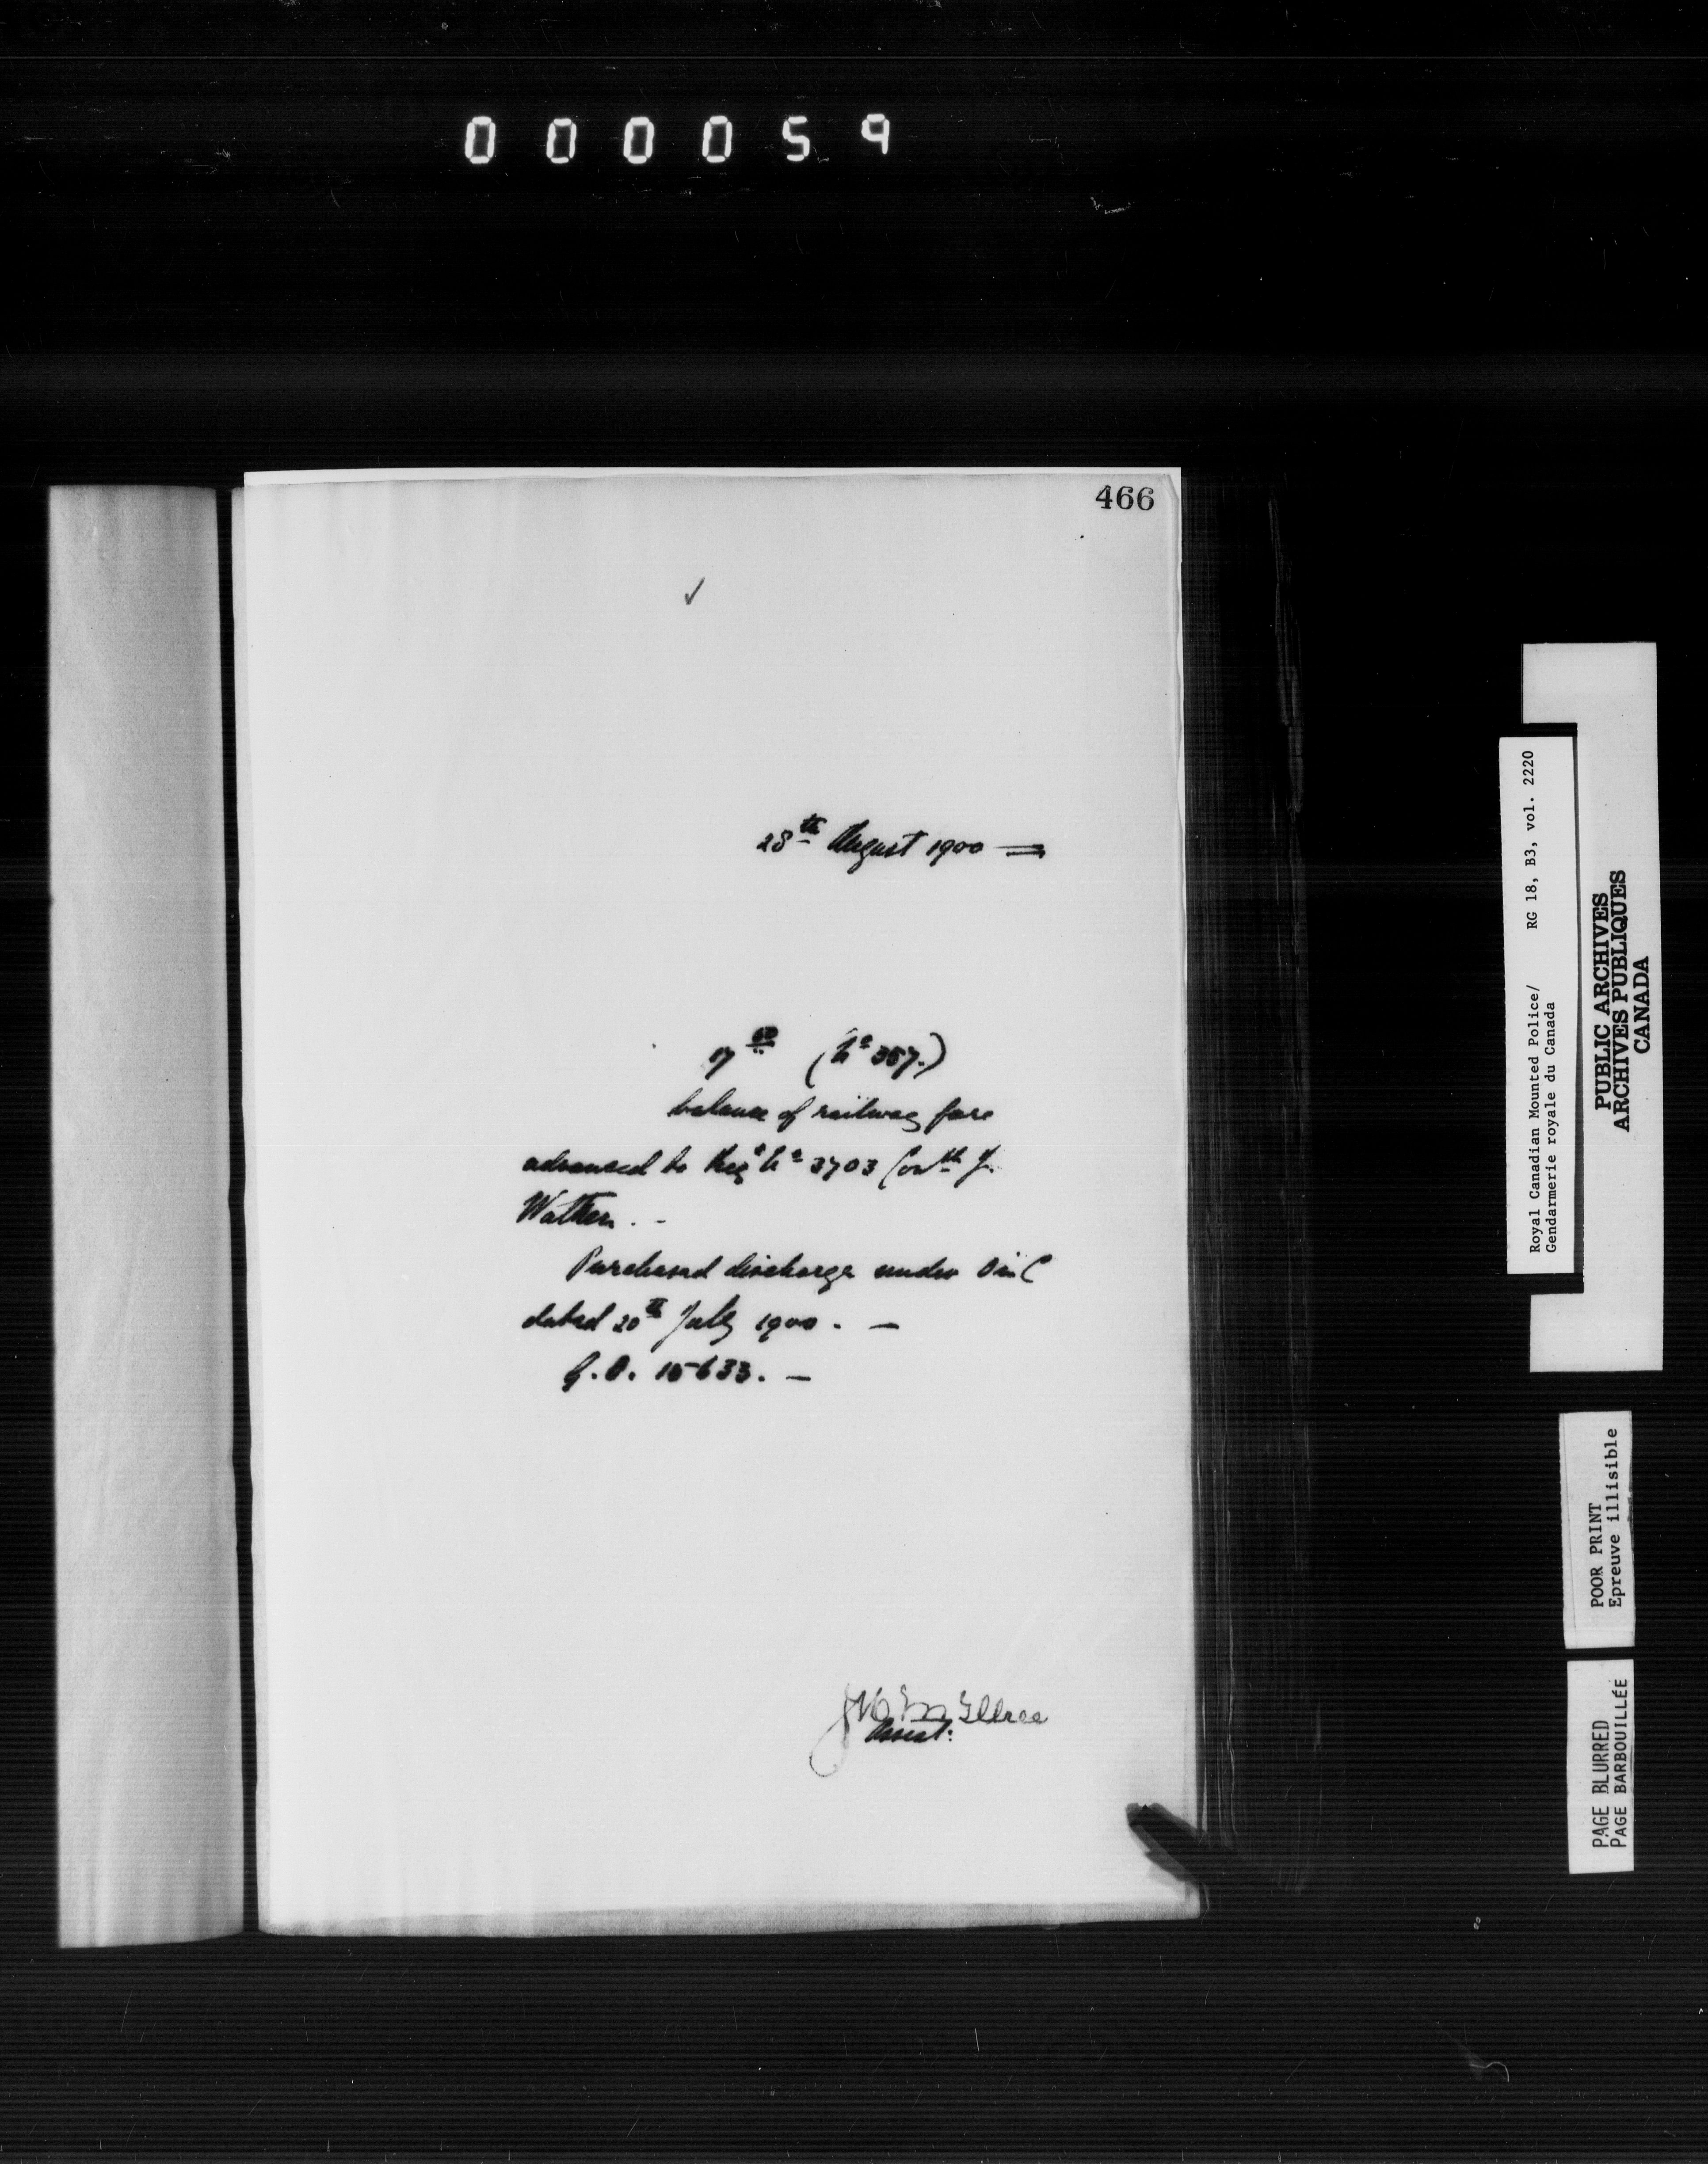 000059
466
✓
28th August 1900
17 50 (No 357.)
balance of railway fare
advanced to Reg. No 3703 Const. J.
Wathen. -
Purchased discharge under O in C
dated 20th July 1900. -
G.O. 15633. -
J H McIllree
Assist:
Royal Canadian Mounted Police/ RG 18, B3, vol. 2220
Gendarmerie royale du Canada
PUBLIC ARCHIVES
ARCHIVES PUBLIQUES
CANADA
POOR PRINT
Epreuve illisible
PAGE BLURRED
PAGE BARBOUILLÉE